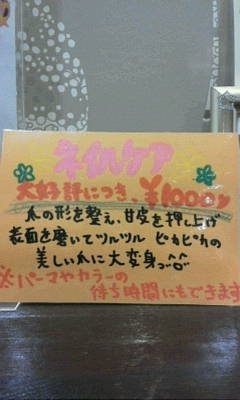 ネイルケア
大好評につき、¥1000
爪の形を整え、甘皮を押し上げ
表面を磨いてツルツル ピカピカの
美しい爪に大変身っ^^
※パーマやカラーの
待ち時間にもできます